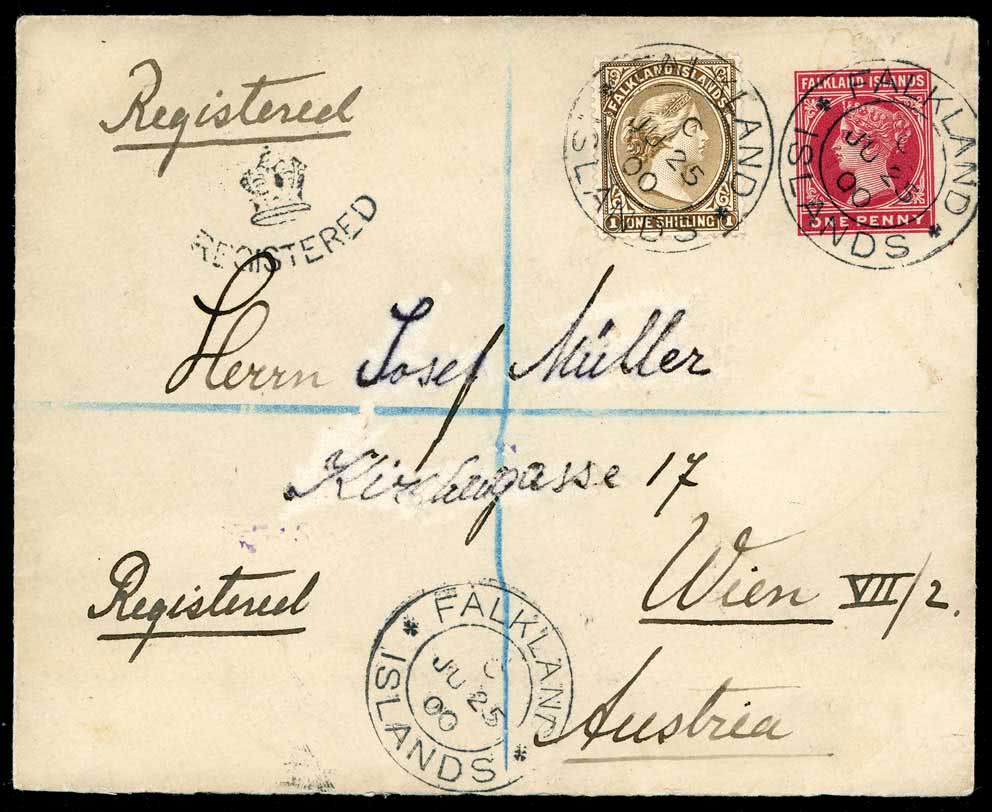 Registered
REGISTERED
FALKLAND ISLANDS
1 ONE SHILLING 1
FALKLAND ISLANDS
C
JU 25
00
FALKLAND ISLANDS
ONE PENNY
FALKLAND ISLANDS
JU 25
00
Herrn Josef Müller
Kirchengasse 17
Wien VII/2.
Registered
FALKLAND ISLANDS
C
JU 25
00
Austria